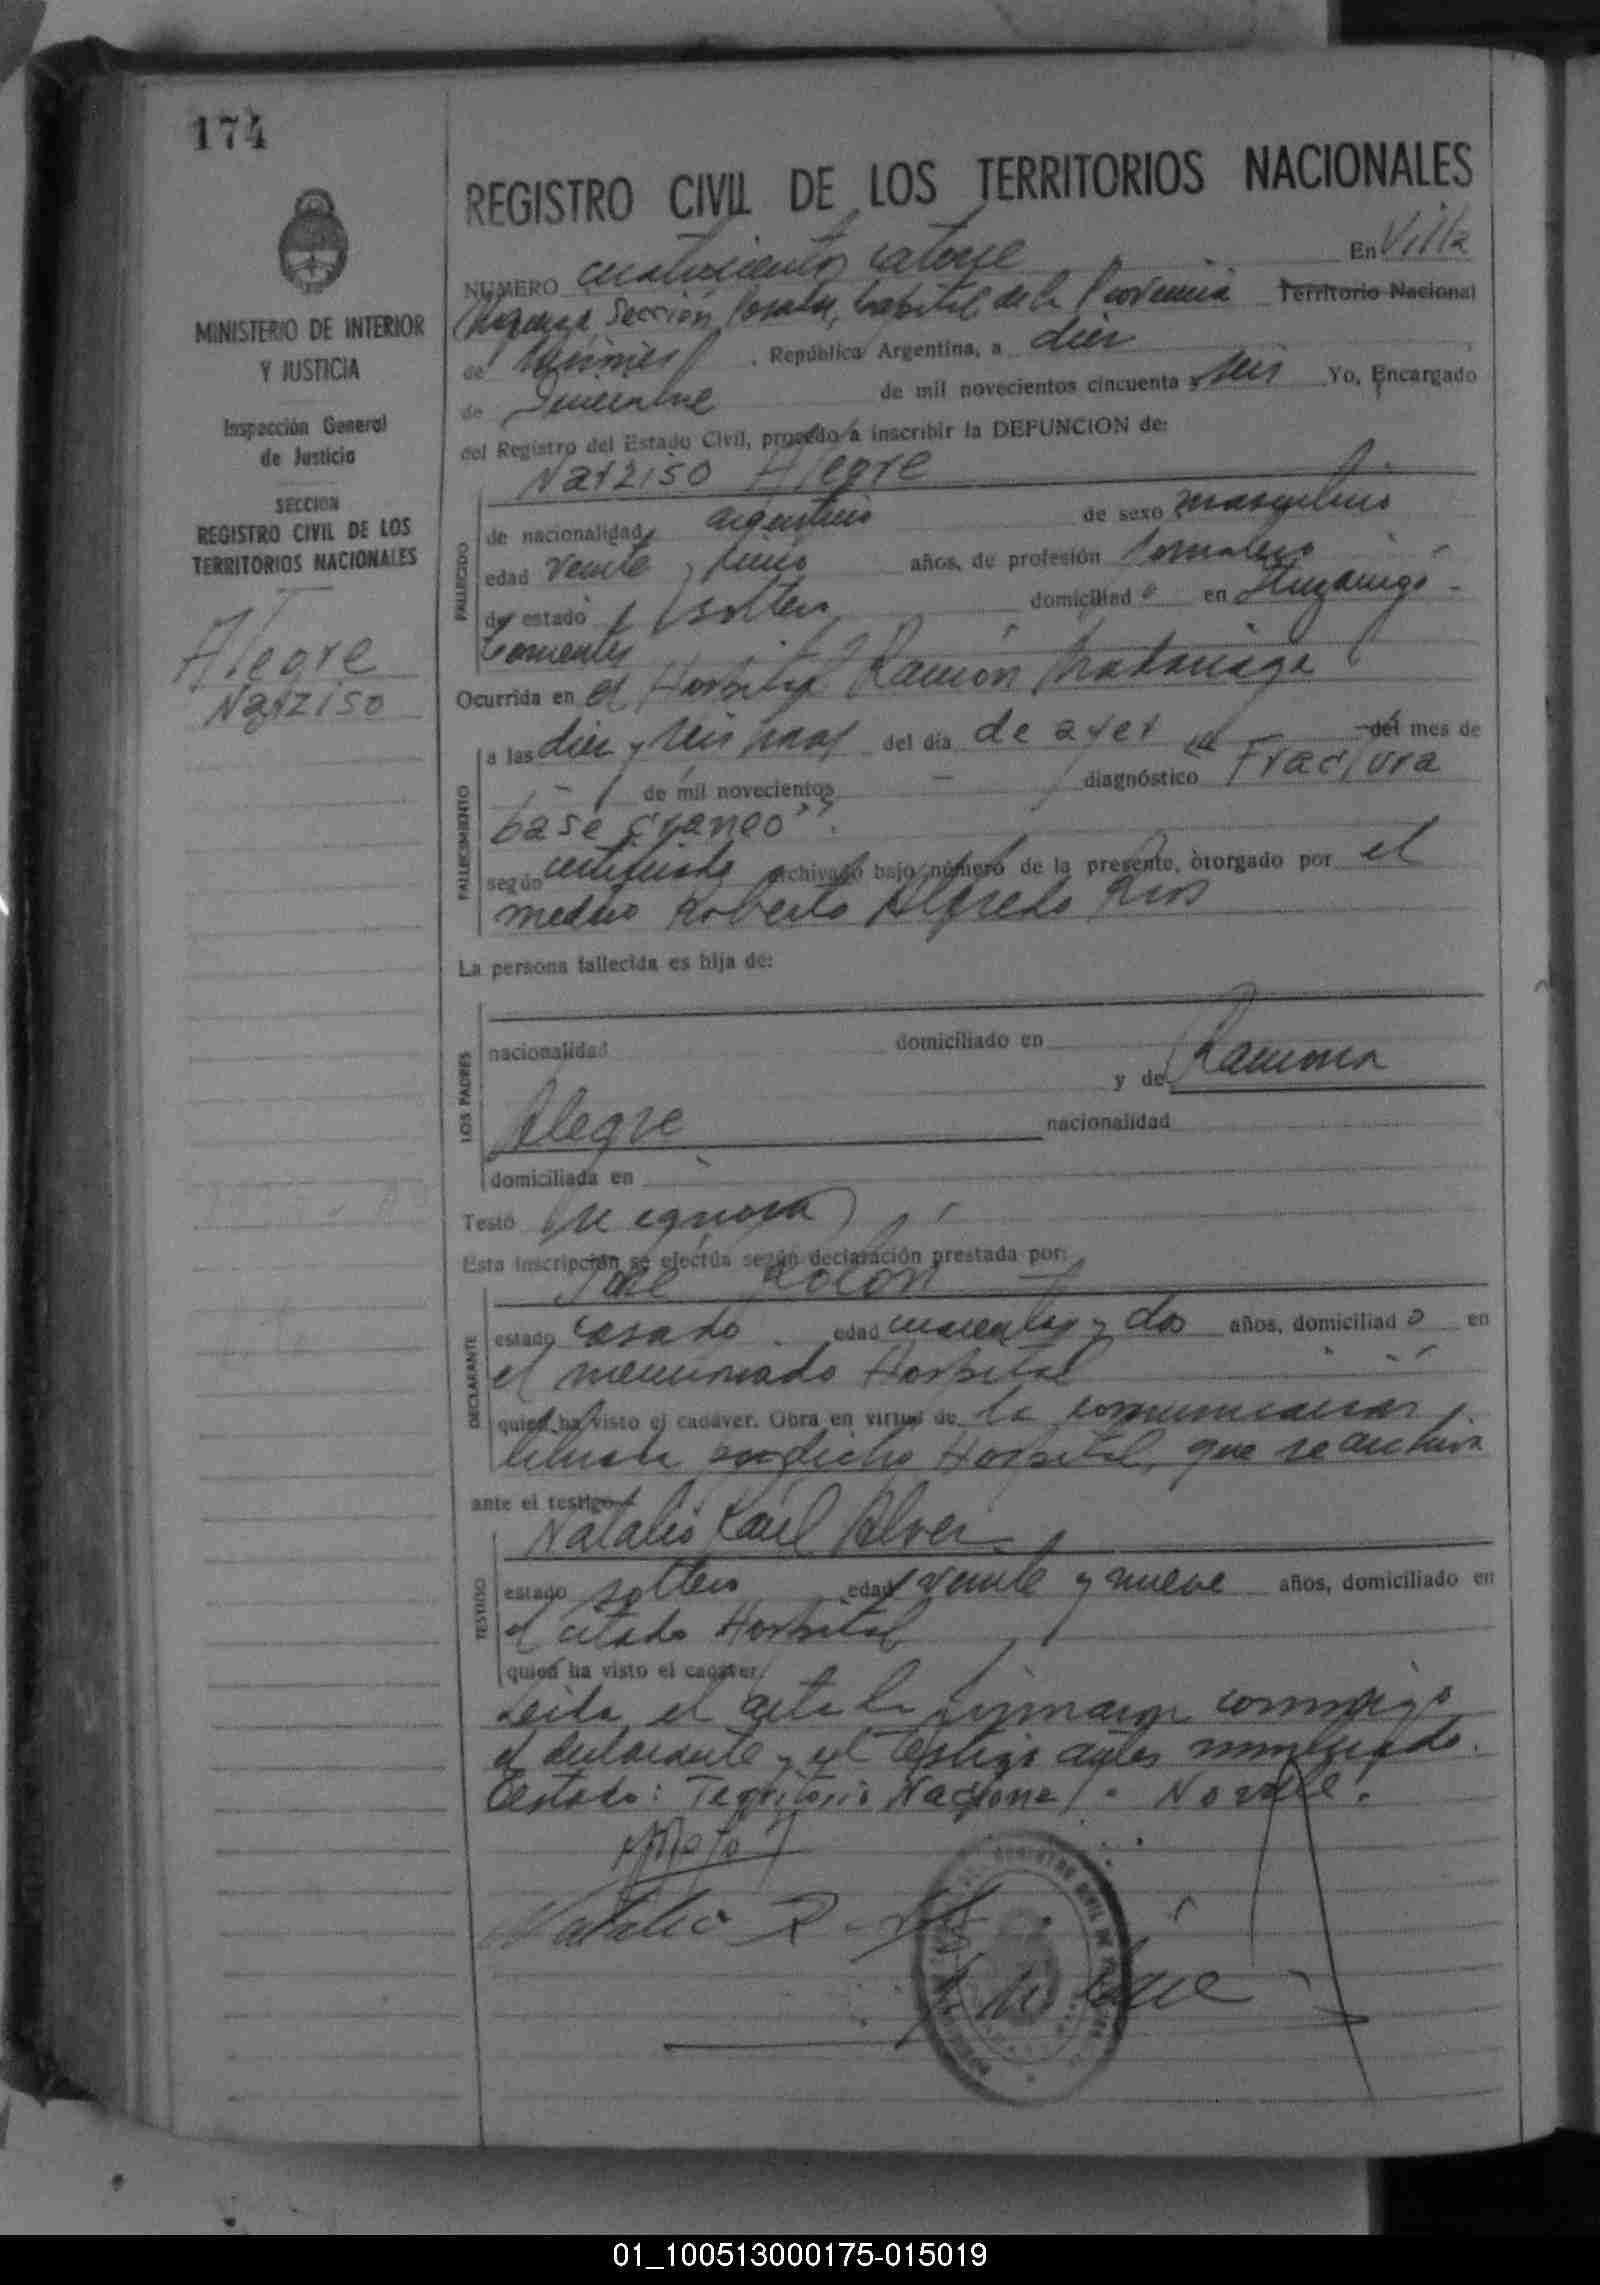 174
MINISTERIO DE INTERIOR
Y JUSTICIA
Inspección General
de Justicia
SECCION
REGISTRO CIVIL DE LOS
TERRITORIOS NACIONALES
Alegre
Narziso
REGISTRO CIVIL DE LOS TERRITORIOS NACIONALES
NUMERO cuatrocientos catorce En Villa
Sección Posadas, Capital de la Provincia Territorio Nacional
de Misiones . República Argentina, a diez
de Diciembre de mil novecientos cincuenta y seis Yo, Encargado
del Registro del Estado Civil, procedo a inscribir la DEFUNCION de:
Narziso Alegre
FALLECIDO
de nacionalidad argentino de sexo masculino
edad veinte y años, de profesión jornalero
de estado soltero domiciliado en Ituzaingó -
Corrientes
Ocurrida en el Hospital Ramón Madariaga
FALLECIMIENTO
a las diez y seis horas del día de ayer del mes de
- de mil novecientos - diagnóstico "Fractura
base craneo".
según certificado archivado bajo número de la presente, otorgado por el
medico Roberto Alfredo Rios
La persona fallecida es hija de:
LOS PADRES
nacionalidad domiciliado en
y de Ramona
Alegre nacionalidad
domiciliada en
Testó se ignora
Esta inscripción se efectúa según declaración prestada por:
José Colón
DECLARANTE
estado casado edad cuarenta y dos años, domiciliado en
el mencionado Hospital
quien ha visto el cadáver. Obra en virtud de la comunicación
librada por dicho Hospital, que se archiva
ante el testigo
Natalio Raúl Alvez
TESTIGO
estado soltero edad veinte y nueve años, domiciliado en
el citado Hospital
quien ha visto el cadáver.
Leida el acta la firmaron conmigo
el declarante y el testigo antes nombrado.
Testado: Territorio Nacional. No vale.
Natalio R.
01_100513000175-015019